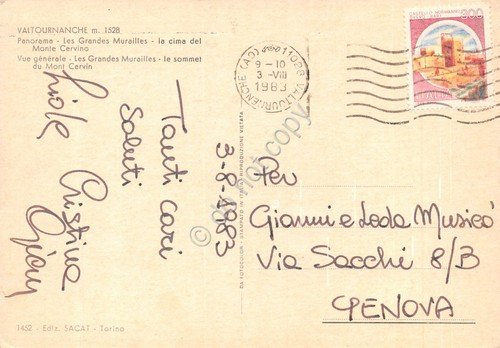 VALTOURNANCHE m. 1528
Panorama - Les Grandes Murailles - la cima del
Monte Cervino
Vue générale - Les Grandes Murailles - le sommet
du Mont Cervin
Tanti cari
Saluti
Cristina
3-8-1983
1452 - Ediz. SACAT - Torino
DA FOTOCOLOR - STAMPATO IN ITALIA - RIPRODUZIONE VIETATA
11028 VALTOURNENCHE (AO)
9-10
3-VIII
1983
300
Per
Gianni e Leda Musicò
Via Sacchi 8/B
GENOVA